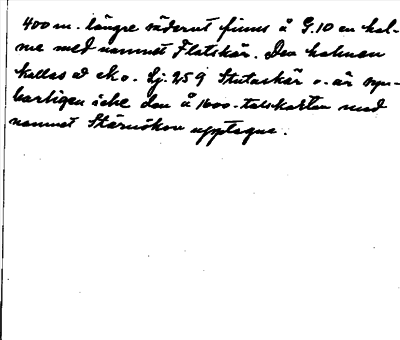 400 m. längre söderut finns å G.10 en hol-
me med namnet Flatskär. Den holmen
kallas å ek o. Lj. 259 Stutaskär o. är syn-
barligen icke den å 1600-talskartan med
namnet upptagne.